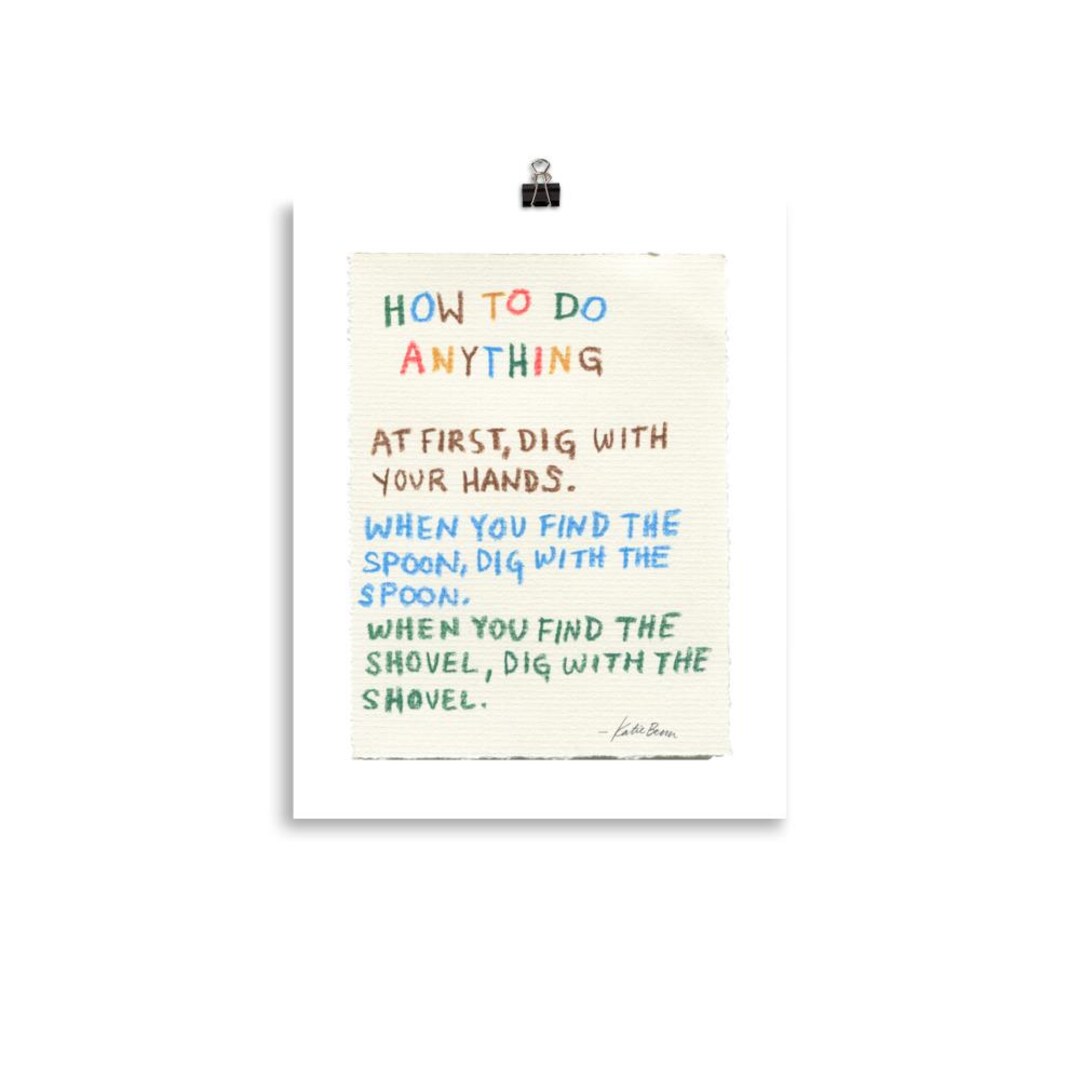 HOW TO DO
ANYTHING
AT FIRST, DIG WITH
YOUR HANDS.
WHEN YOU FIND THE
SPOON, DIG WITH THE
SPOON.
WHEN YOU FIND THE
SHOVEL, DIG WITH THE
SHOVEL.
– Katie Benn